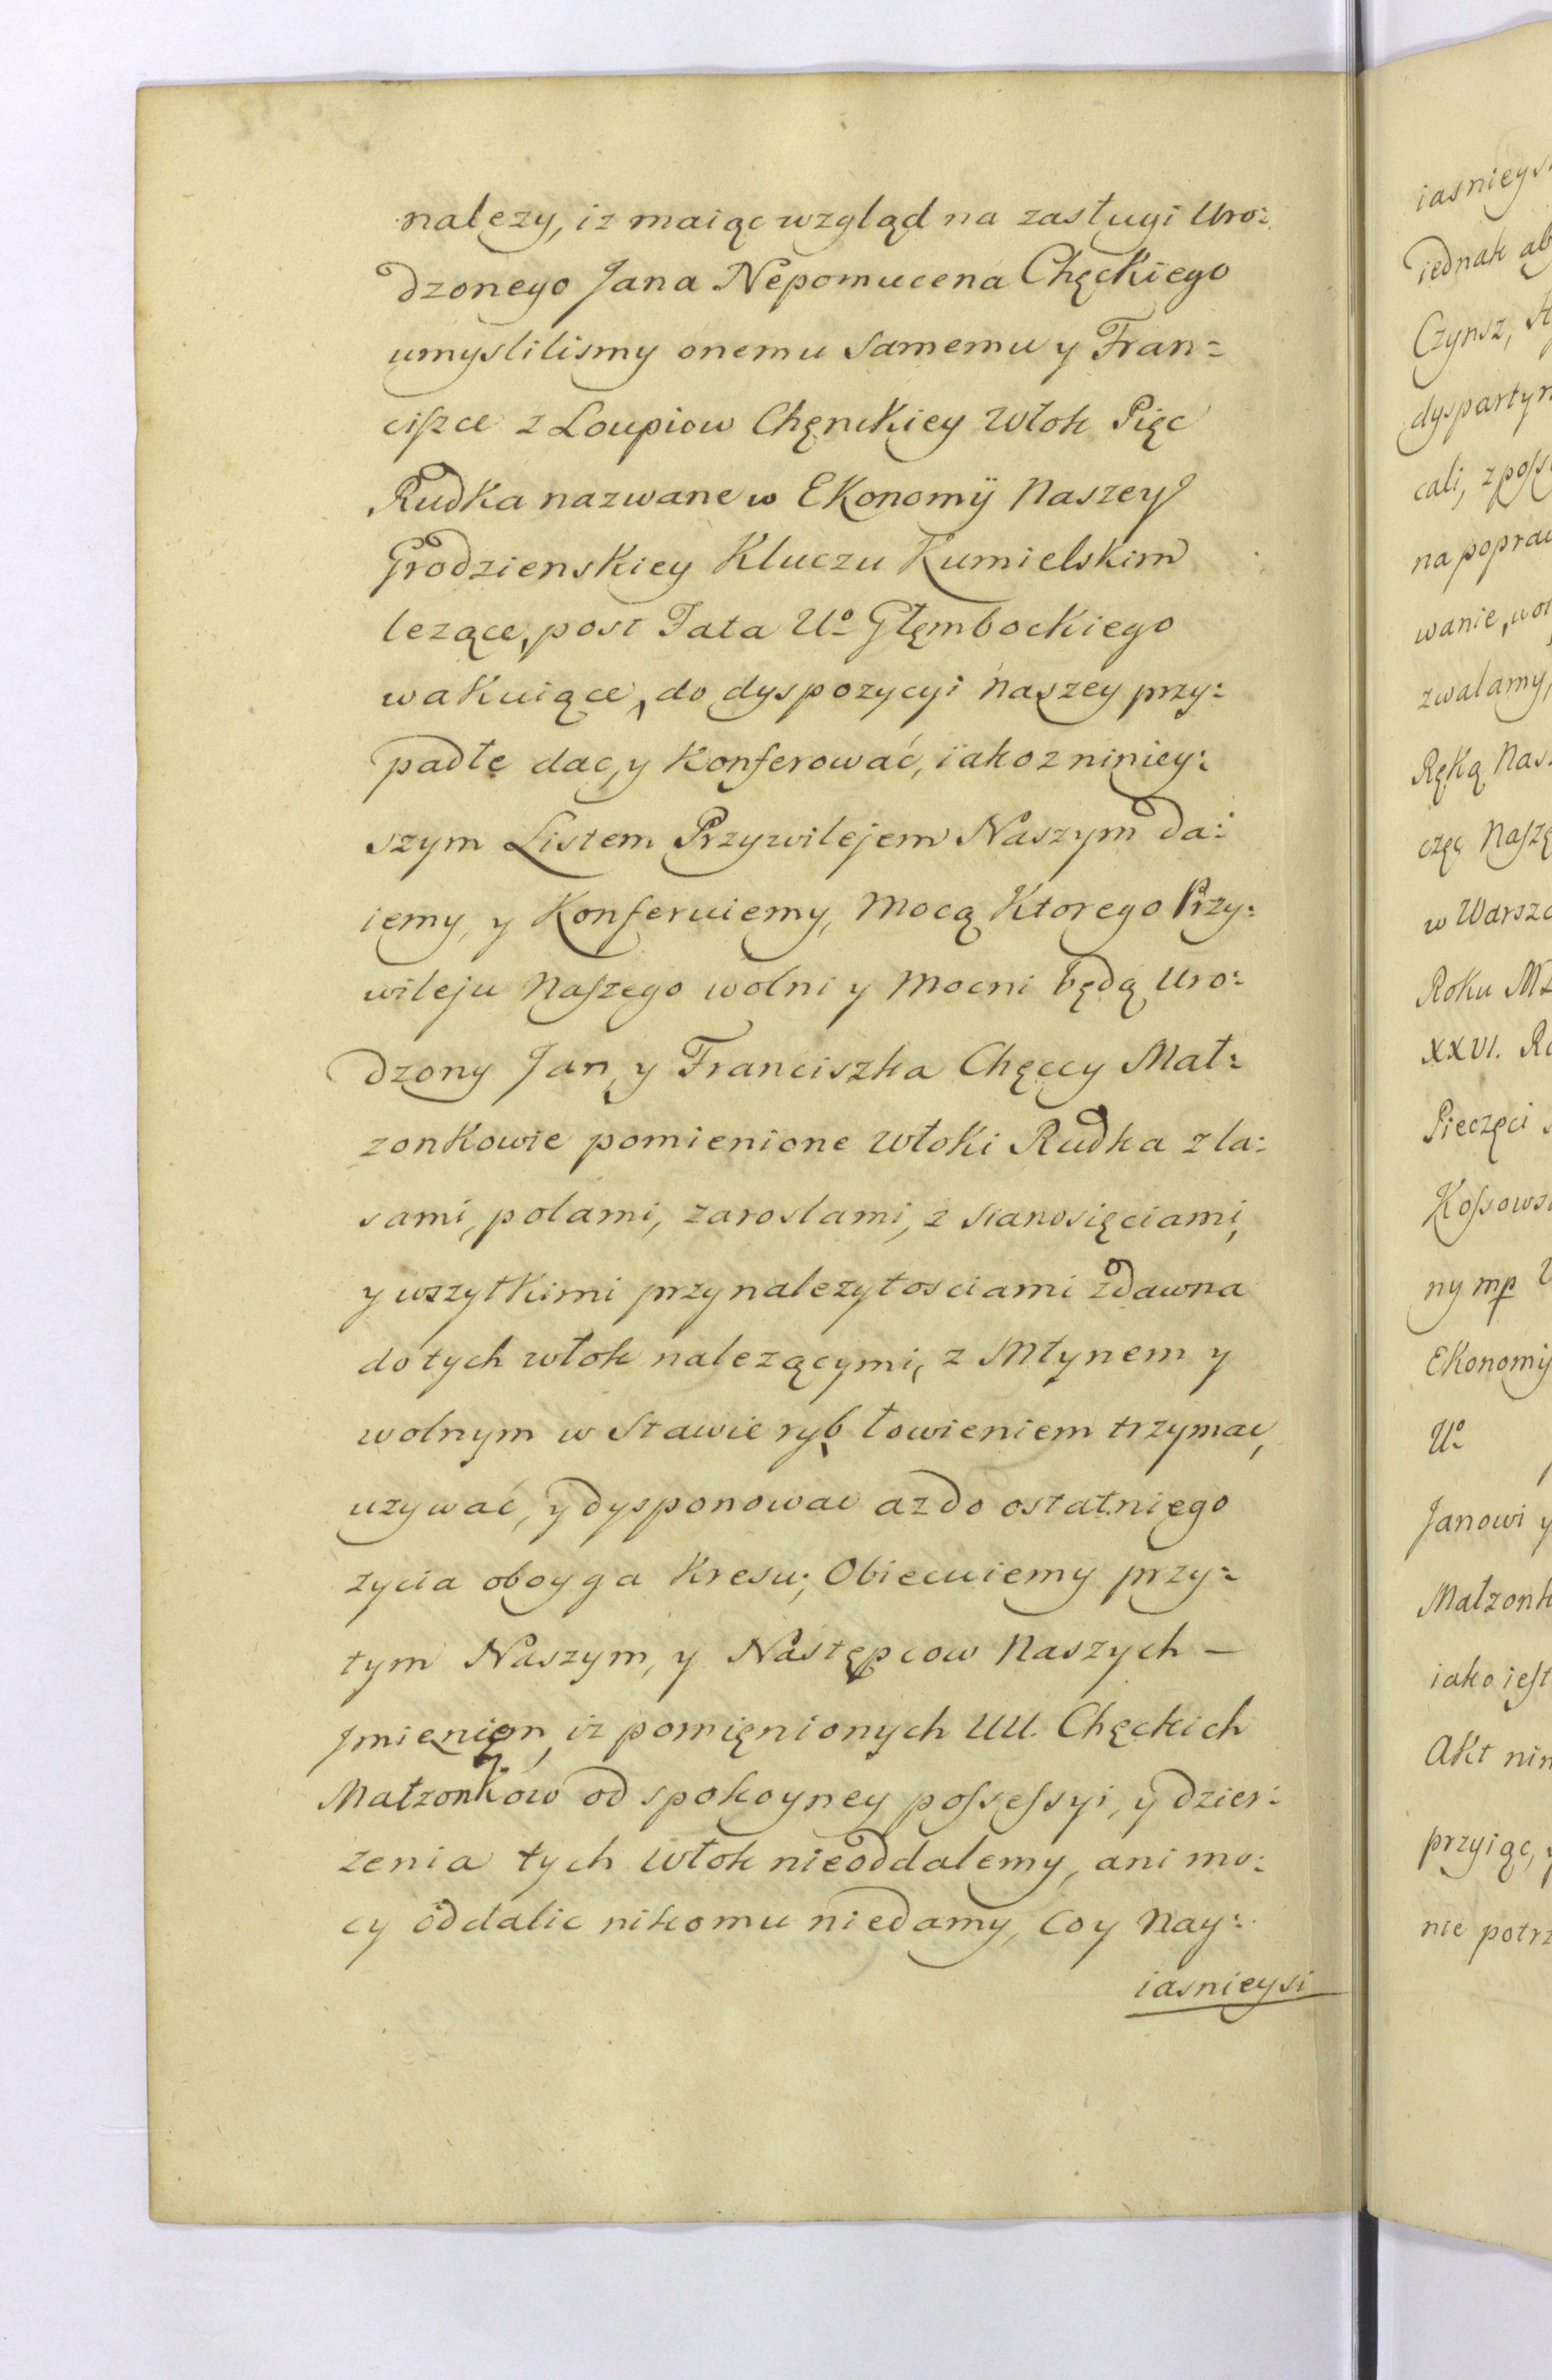 należy, iz maiąc wzgląd na zasługi Uro:
dzonego Jana Nepomucena Chęckiego
umyslilismy onemu samemu y Fran=
ciſzce z Loupiow Chęnckiey Włok Pięc
Rudka nazwane w Ekonomÿ Naszey
Grodzienskiey Kluczu Kumielskim
lezące, post Fata Uº Głęmbockiego
wakuiące, do dyspozycyi Naszey przy:
padłe dac, y Konferować, iakoz niniey:
szym Listem Przywilejem Naszym da:
iemy, y Konferuiemy, Mocą Ktorego Przy:
wileju Naſzego wolni y Mocni będą Uro:
dzony Jan y Franciszka Chęccy Mał:
zonkowie pomienione Włoki Rudka z la:
sami, polami, zaroslami, z sianosięciami,
y wszytkimi przynalezytosciami zdawna
do tych włok nalezącymi, z Młynem y
wolnym w Stawie ryb łowieniem trzymac,
uzywać, y dysponowac az do ostatniego
zycia oboyga Kresu; Obiecuiemy przy:
tym Naszym, y Następcow Naszych —
Jmieniem, iz pomięnionych UU. Chęckich
Małzonkow od spokoyney poſseſsyi, y dzier:
zenia tych Włok nieoddalemy, ani mo:
cy oddalic nikomu niedamy, co y Nay:
iasnieysi
iasnieys
iednak ab
Czynsz,
dyspartym
cali, z poſs
na popraw
wanie, wol
zwalamy,
Ręką Nas
częc Naſzę
w Warsza
Roku
XXVI. Ro
Pieczęci
Koſsows
ny mp
Ekonomÿ
Uº
Janowi y
Małzonk
iako ieſt
Akt nin
przyiąc,
nie potrz